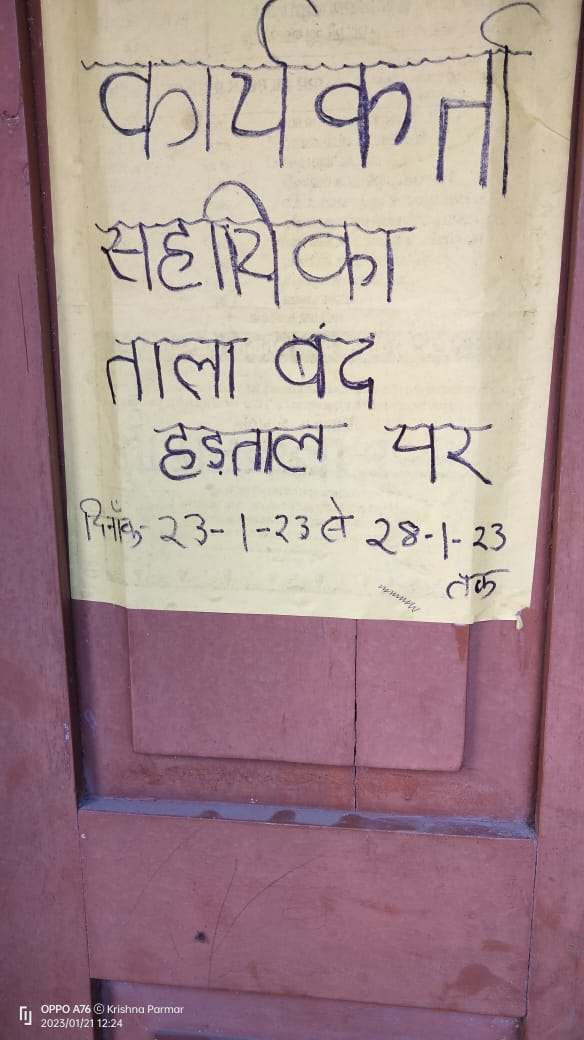 कार्यकर्ता
सहायिका
ताला बंद
हड़ताल पर
दिनाँक- 23-1-23 से 28-1-23
तक
OPPO A76 © Krishna Parmar
2023/01/21 12:24